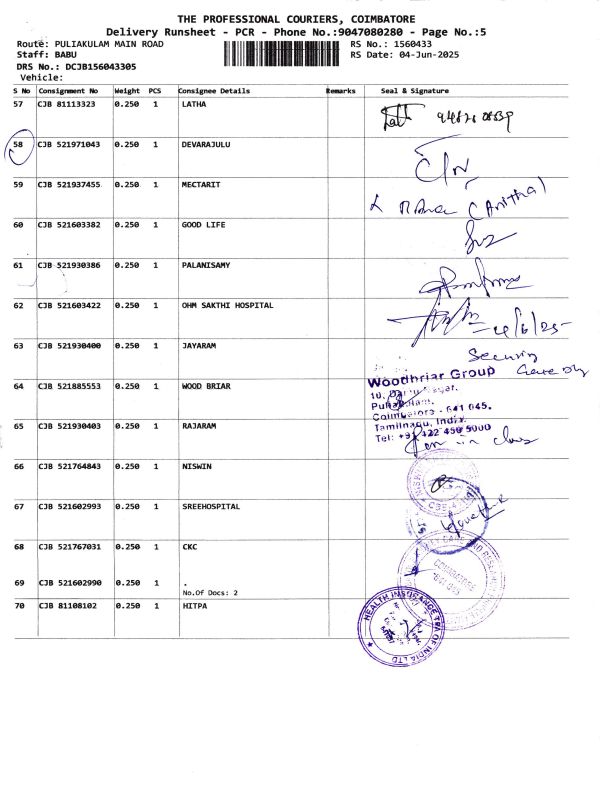 THE PROFESSIONAL COURIERS, COIMBATORE
Delivery Runsheet - PCR - Phone No.:9047080280 - Page No.:5
Route: PULIAKULAM MAIN ROAD RS No.: 1560433
Staff: BABU RS Date: 04-Jun-2025
DRS No.: DCJB156043305
Vehicle:
S No Consignment No Weight PCS Consignee Details Remarks Seal & Signature
57 CJB 81113323 0.250 1 LATHA
58 CJB 521971043 0.250 1 DEVARAJULU
59 CJB 521937455 0.250 1 MECTARIT
(Anitha)
60 CJB 521603382 0.250 1 GOOD LIFE
61 CJB 521930386 0.250 1 PALANISAMY
62 CJB 521603422 0.250 1 OHM SAKTHI HOSPITAL
4/6/25
63 CJB 521930400 0.250 1 JAYARAM
Security
64 CJB 521885553 0.250 1 WOOD BRIAR
Woodbriar Group
Coimbatore - 641 045.
Tamilnadu, India.
65 CJB 521930403 0.250 1 RAJARAM
66 CJB 521764843 0.250 1 NISWIN
67 CJB 521602993 0.250 1 SREEHOSPITAL
68 CJB 521767031 0.250 1 CKC
COIMBATORE
69 CJB 521602990 0.250 1 .
No.Of Docs: 2
70 CJB 81108102 0.250 1 HITPA
HEALTH INSURANCE TPA OF INDIA LTD